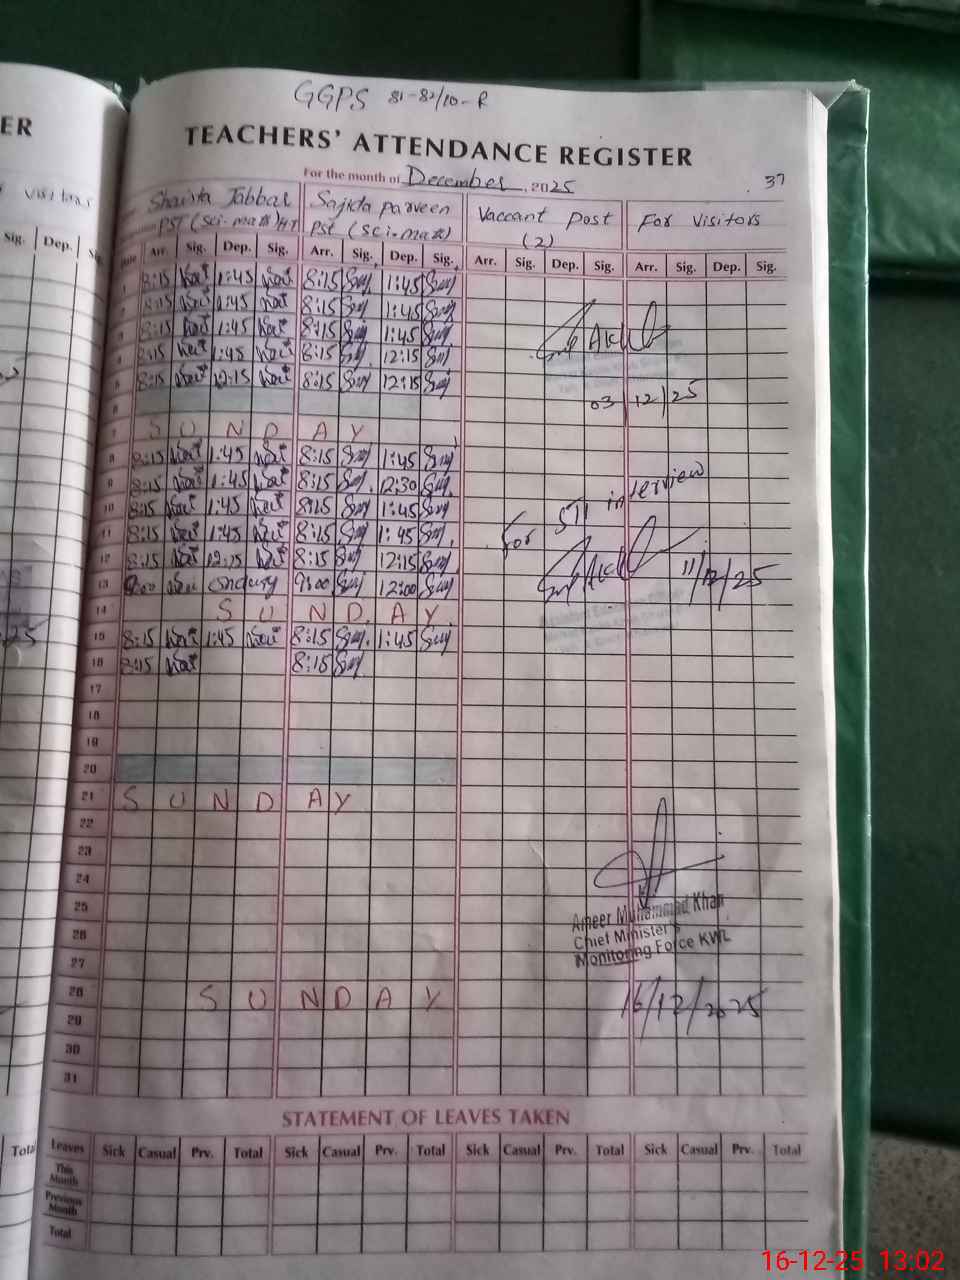 GGPS 81-82/10-R
ER
TEACHERS' ATTENDANCE REGISTER
For the month of December, 2025
37
Visitors
Shaista Jabbar
PST (Sci-math) HT
Sajida Parveen
Pst (Sci-math)
Vaccant Post
(2)
For Visitors
Sig. Dep. Sig.
Date Arr. Sig. Dep. Sig. Arr. Sig. Dep. Sig. Arr. Sig. Dep. Sig. Arr. Sig. Dep. Sig.
1 8:15 1:45 8:15 1:45
2 8:15 1:45 8:15 1:45
3 8:15 1:45 8:15 1:45
4 8:15 1:45 8:15 12:15
5 8:15 12:15 8:15 12:15
03/12/25
6
7 SUNDAY
8 8:15 1:45 8:15 1:45
9 8:15 1:45 8:15 12:30
10 8:15 1:45 8:15 1:45
11 8:15 1:45 8:15 1:45
For STI interview
12 8:15 12:15 8:15 12:15
11/12/25
13 9:00 9:00 12:00
14 SUNDAY
15 8:15 1:45 8:15 1:45
16 8:15 8:15
17
18
19
20
21 SUNDAY
22
23
24
25
26
27
Ameer Muhammad Khan
Chief Minister's
Monitoring Force KWL
28 SUNDAY
16/12/2025
29
30
31
STATEMENT OF LEAVES TAKEN
Total
Leaves Sick Casual Prv. Total Sick Casual Prv. Total Sick Casual Prv. Total Sick Casual Prv. Total
This Month
Previous Month
Total
16-12-25 13:02